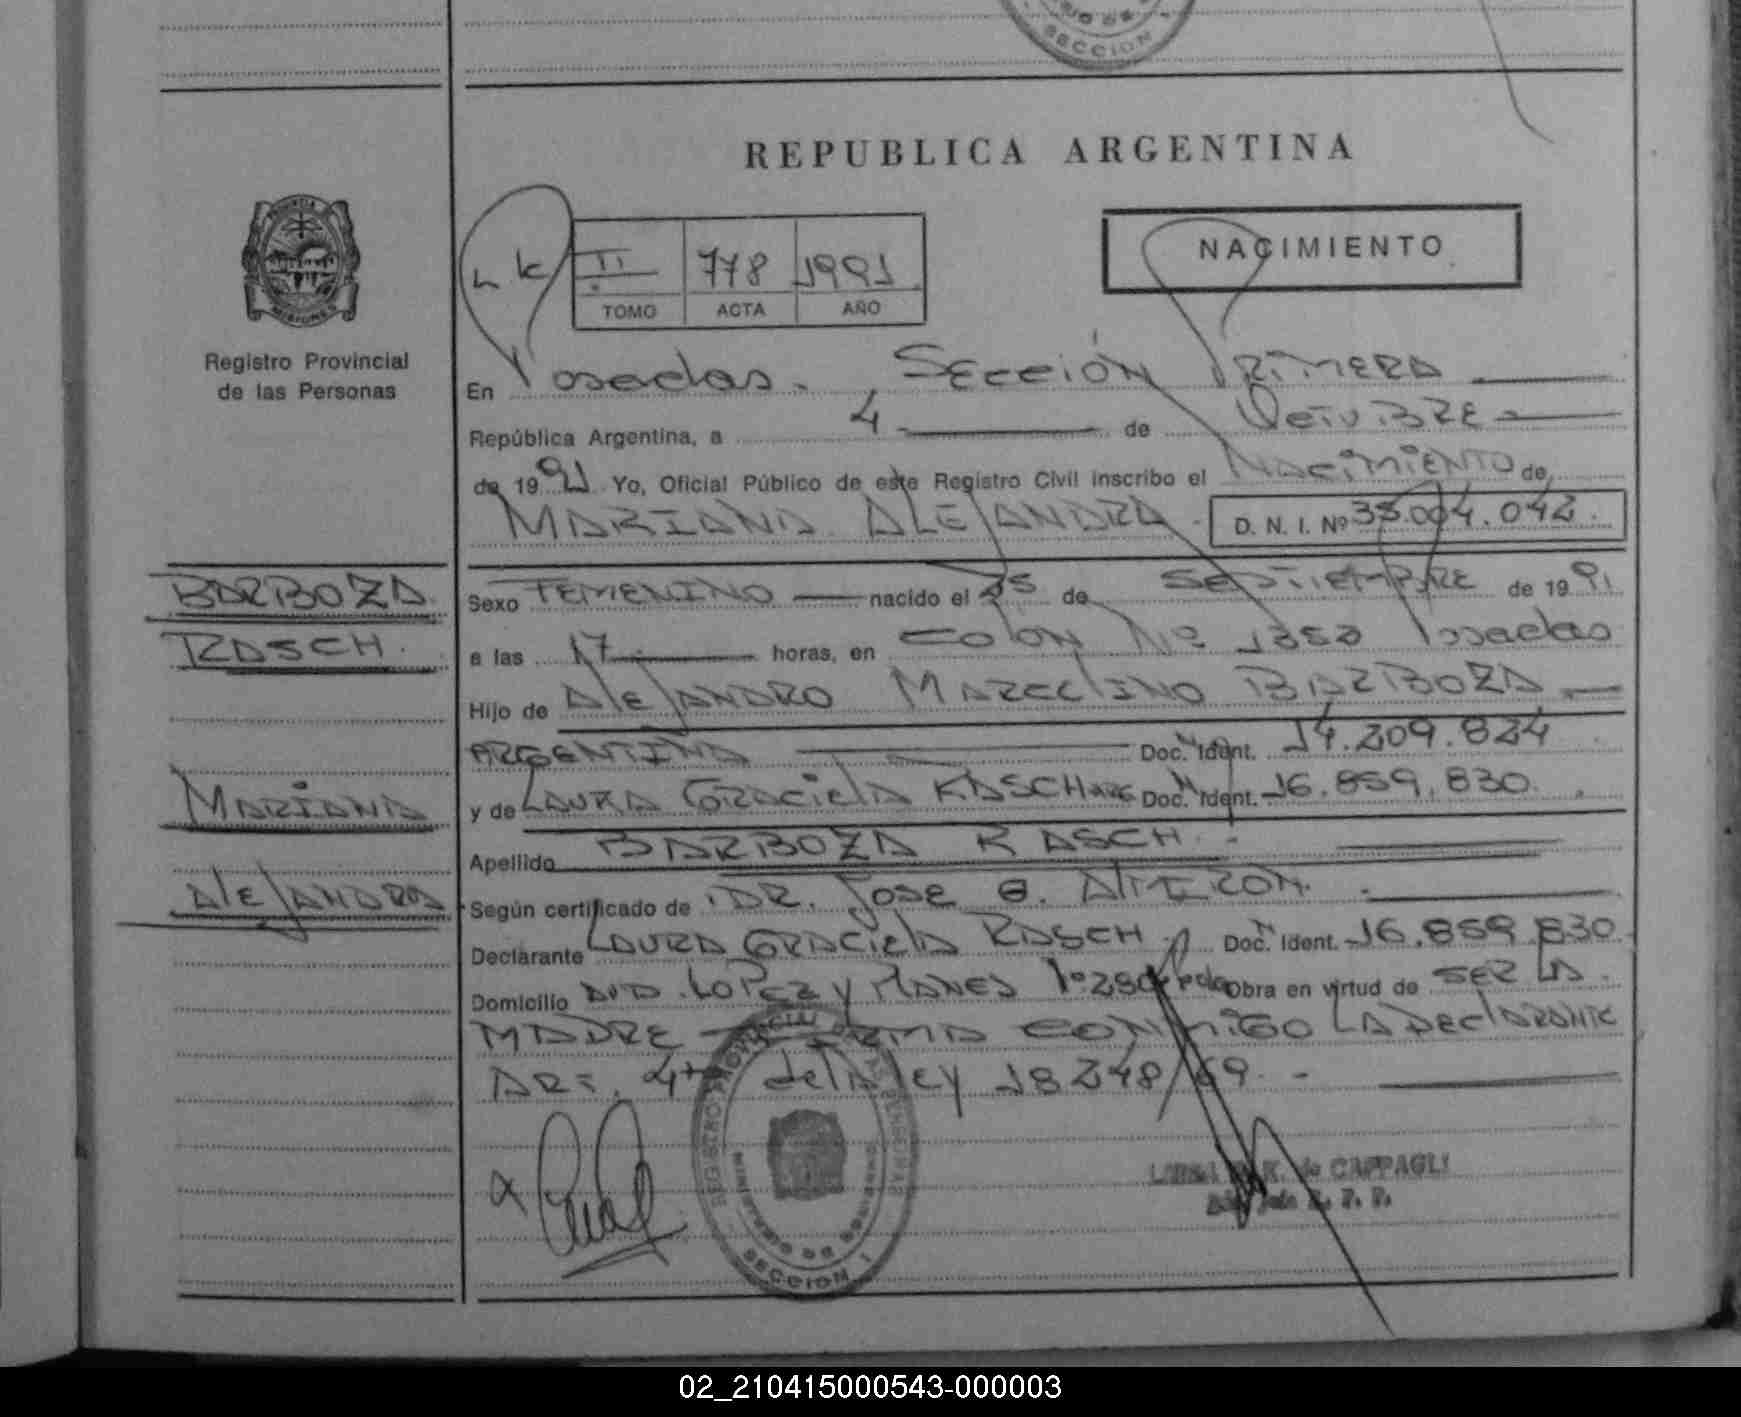 SECCION
REPUBLICA ARGENTINA
NACIMIENTO
II 778 1991
TOMO ACTA AÑO
PROVINCIA
MISIONES
Registro Provincial
de las Personas
En Posadas. Sección PRIMERA
República Argentina, a 4 de OCTUBRE
de 1991 Yo, Oficial Público de este Registro Civil inscribo el NACIMIENTO de
MARIANA ALEJANDRA. D. N. I. Nº 004.042.
BARBOZA
RASCH.
MARIANA
ALEJANDRA
Sexo FEMENINO nacido el 25 de SEPTIEMBRE de 1991
a las 17 horas, en COLON Nº Posadas
Hijo de ALEJANDRO MARCELINO BARBOZA
ARGENTINA Doc. Ident. 14.209.824
y de LAURA GRACIELA RASCH ARG Doc. Ident. 16.859.830.
Apellido BARBOZA RASCH.
Según certificado de DR. JOSE
Declarante LAURA GRACIELA RASCH. Doc. Ident. 16.859.830
Domicilio AVD. LOPEZ y PLANES Obra en virtud de SER LA
MADRE FIRMA CONMIGO LA DECLARANTE
ART. de la Ley 18248/69.
REGISTRO PROVINCIAL DE LAS PERSONAS
SECCION 1
de CAPPAGLI
02_210415000543-000003